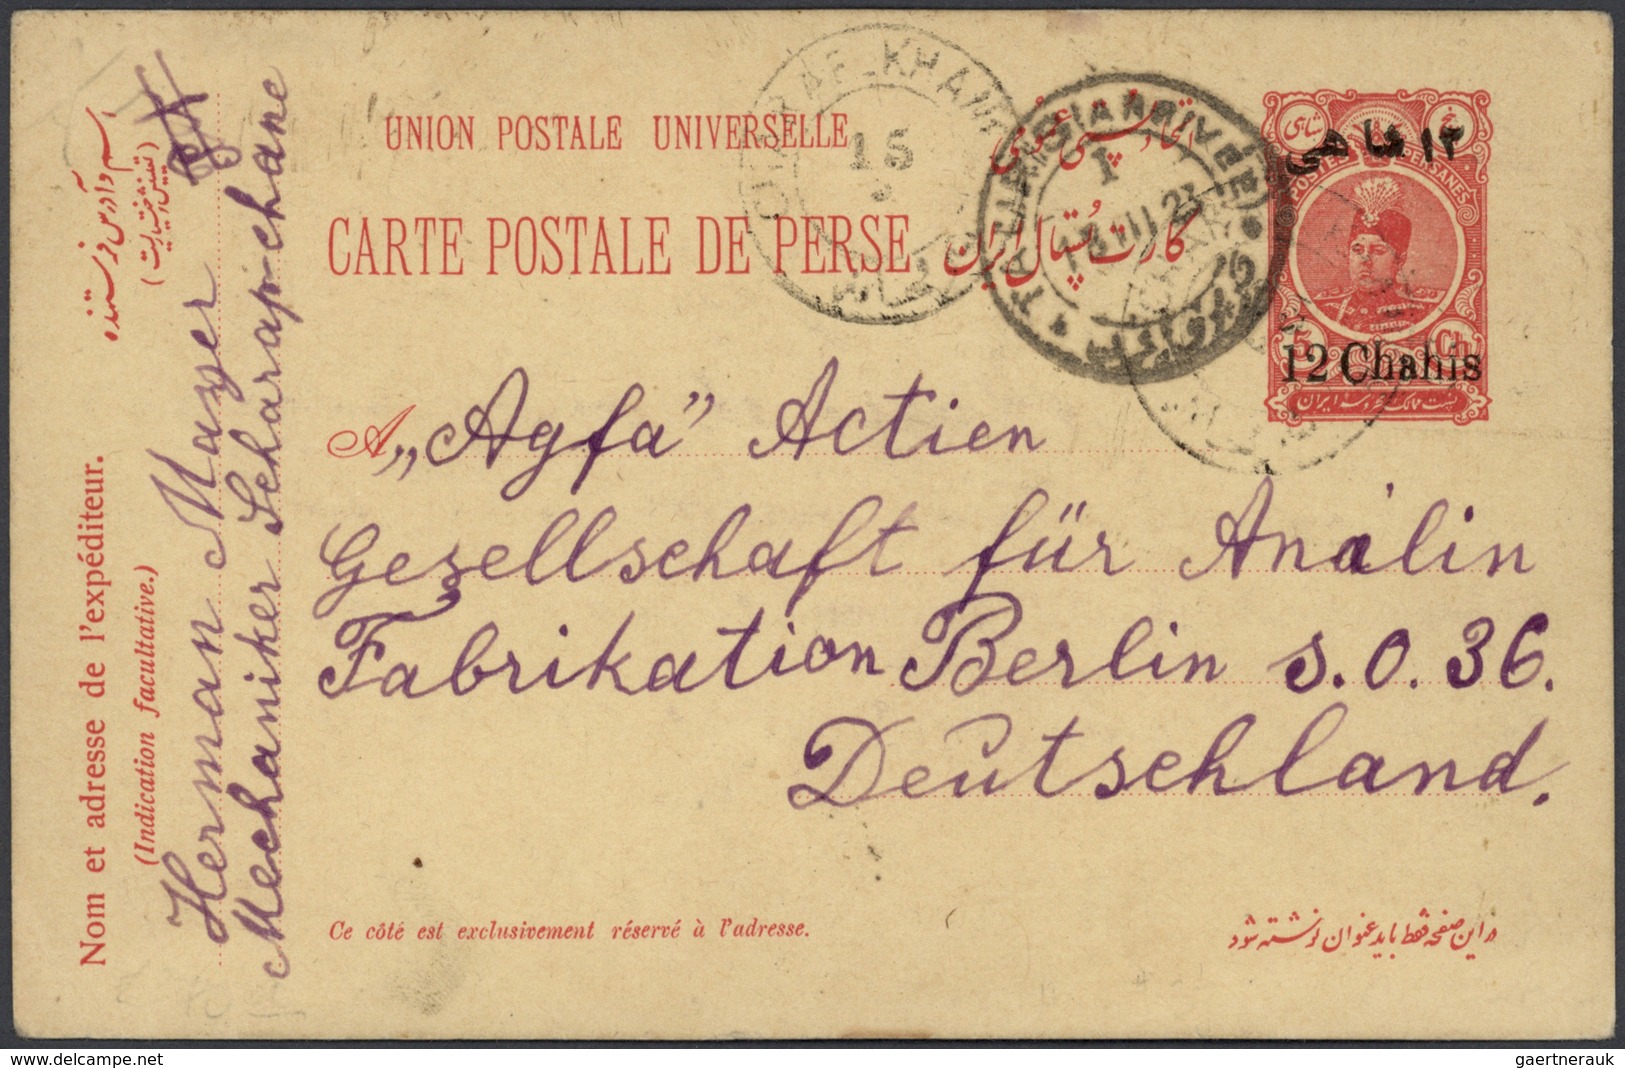 UNION POSTALE UNIVERSELLE
CARTE POSTALE DE PERSE
کارت پستال ایران
۱۲ شاهی
POSTES PERSANES
5 Ch
12 Chahis
15
TAURIS ARRIVÉE
1
18 III 23
A „Agfa” Actien
Gesellschaft für Analin
Fabrikation Berlin S.O. 36.
Deutschland.
Ce côté est exclusivement réservé à l'adresse.
در این صفحه فقط باید عنوان نوشته شود
Nom et adresse de l'expéditeur.
(Indication facultative.)
اسم و آدرس فرستنده
Herman Mayer
Mechaniker Scharapchane
gaertnerauk